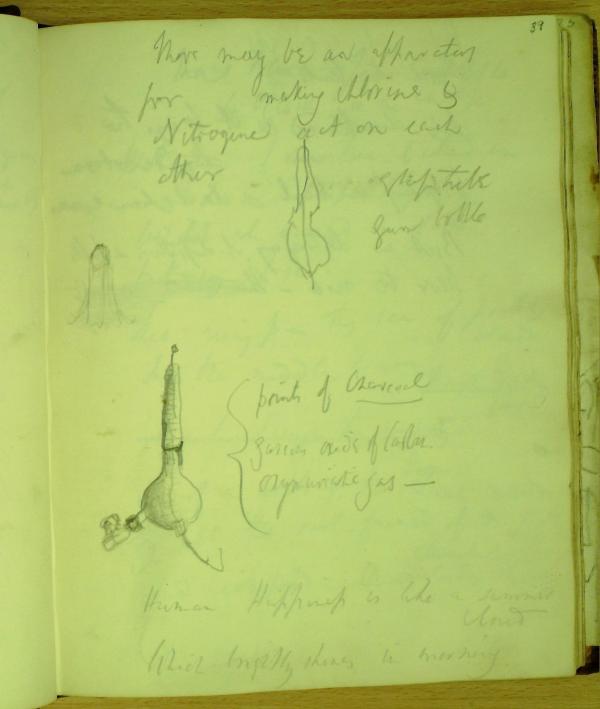 39
There may be an apparatus
for making chlorine &
Nitrogene act on each
other
glass tube
Gum bottle
points of Charcoal
gaseous oxide of Carbon.
oxymuriatic gas —
Human Happiness is like a summer
cloud
Which brightly shines in morning